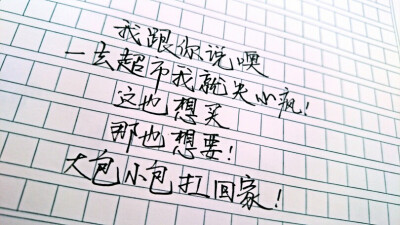 我跟你说噢
一去超市我就失心疯!
这也想买
那也想要!
大包小包扛回家!